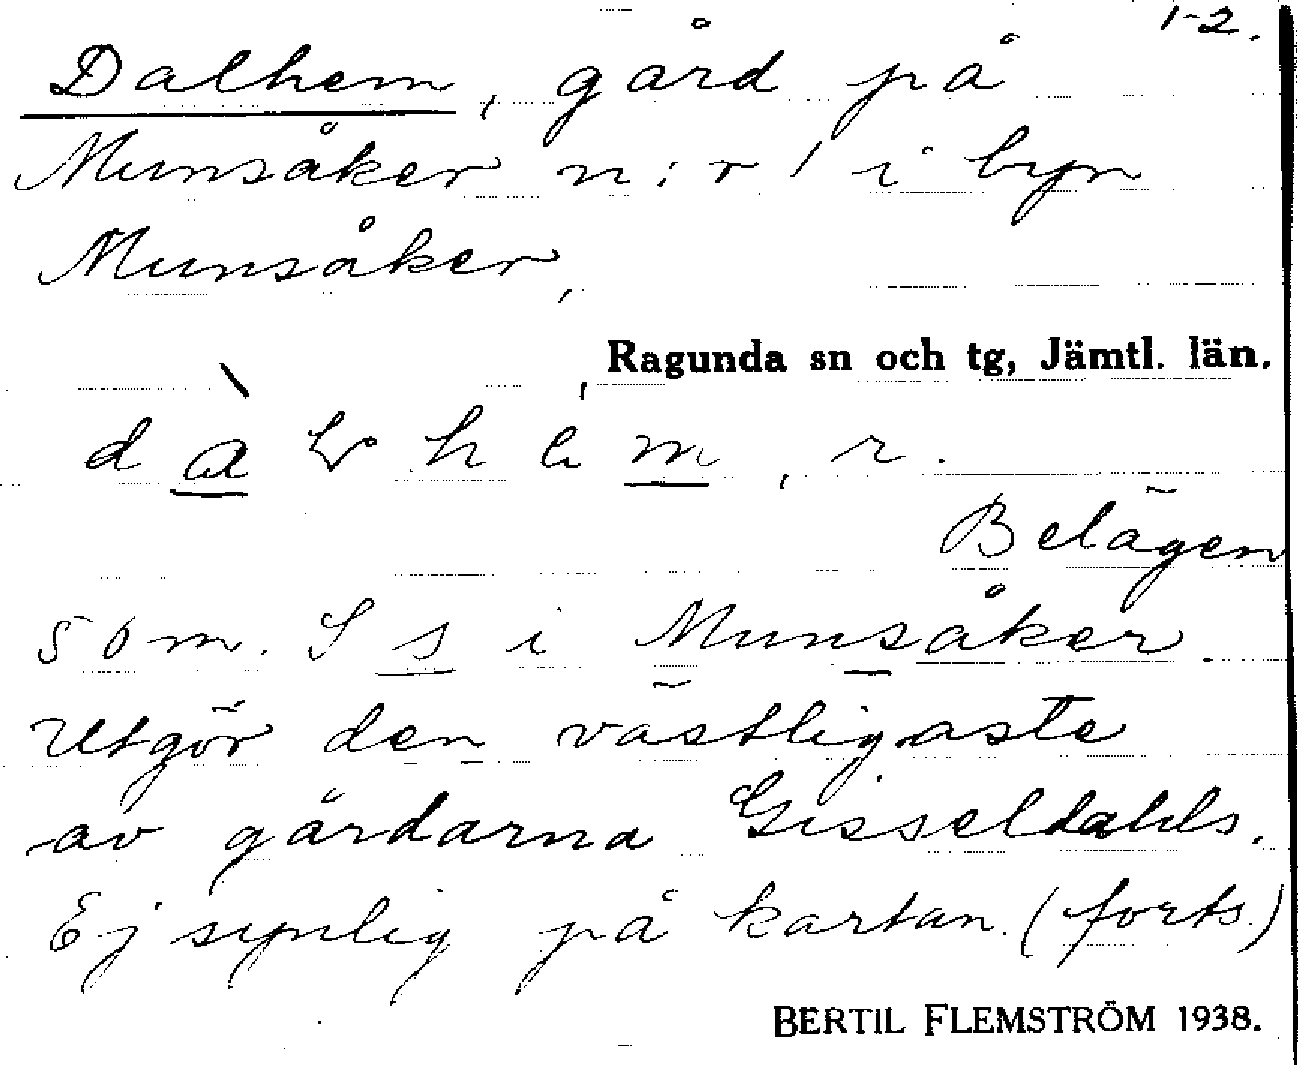 1-2.
Dalhem, gård på
Munsåker n:r 1 i byn
Munsåker,
Ragunda sn och tg, Jämtl. län.
r.
Belägen
50 m. S s i Munsåker
Utgör den västligaste
av gårdarna Gisseldahls.
Ej synlig på kartan. (forts.)
BERTIL FLEMSTRÖM 1938.